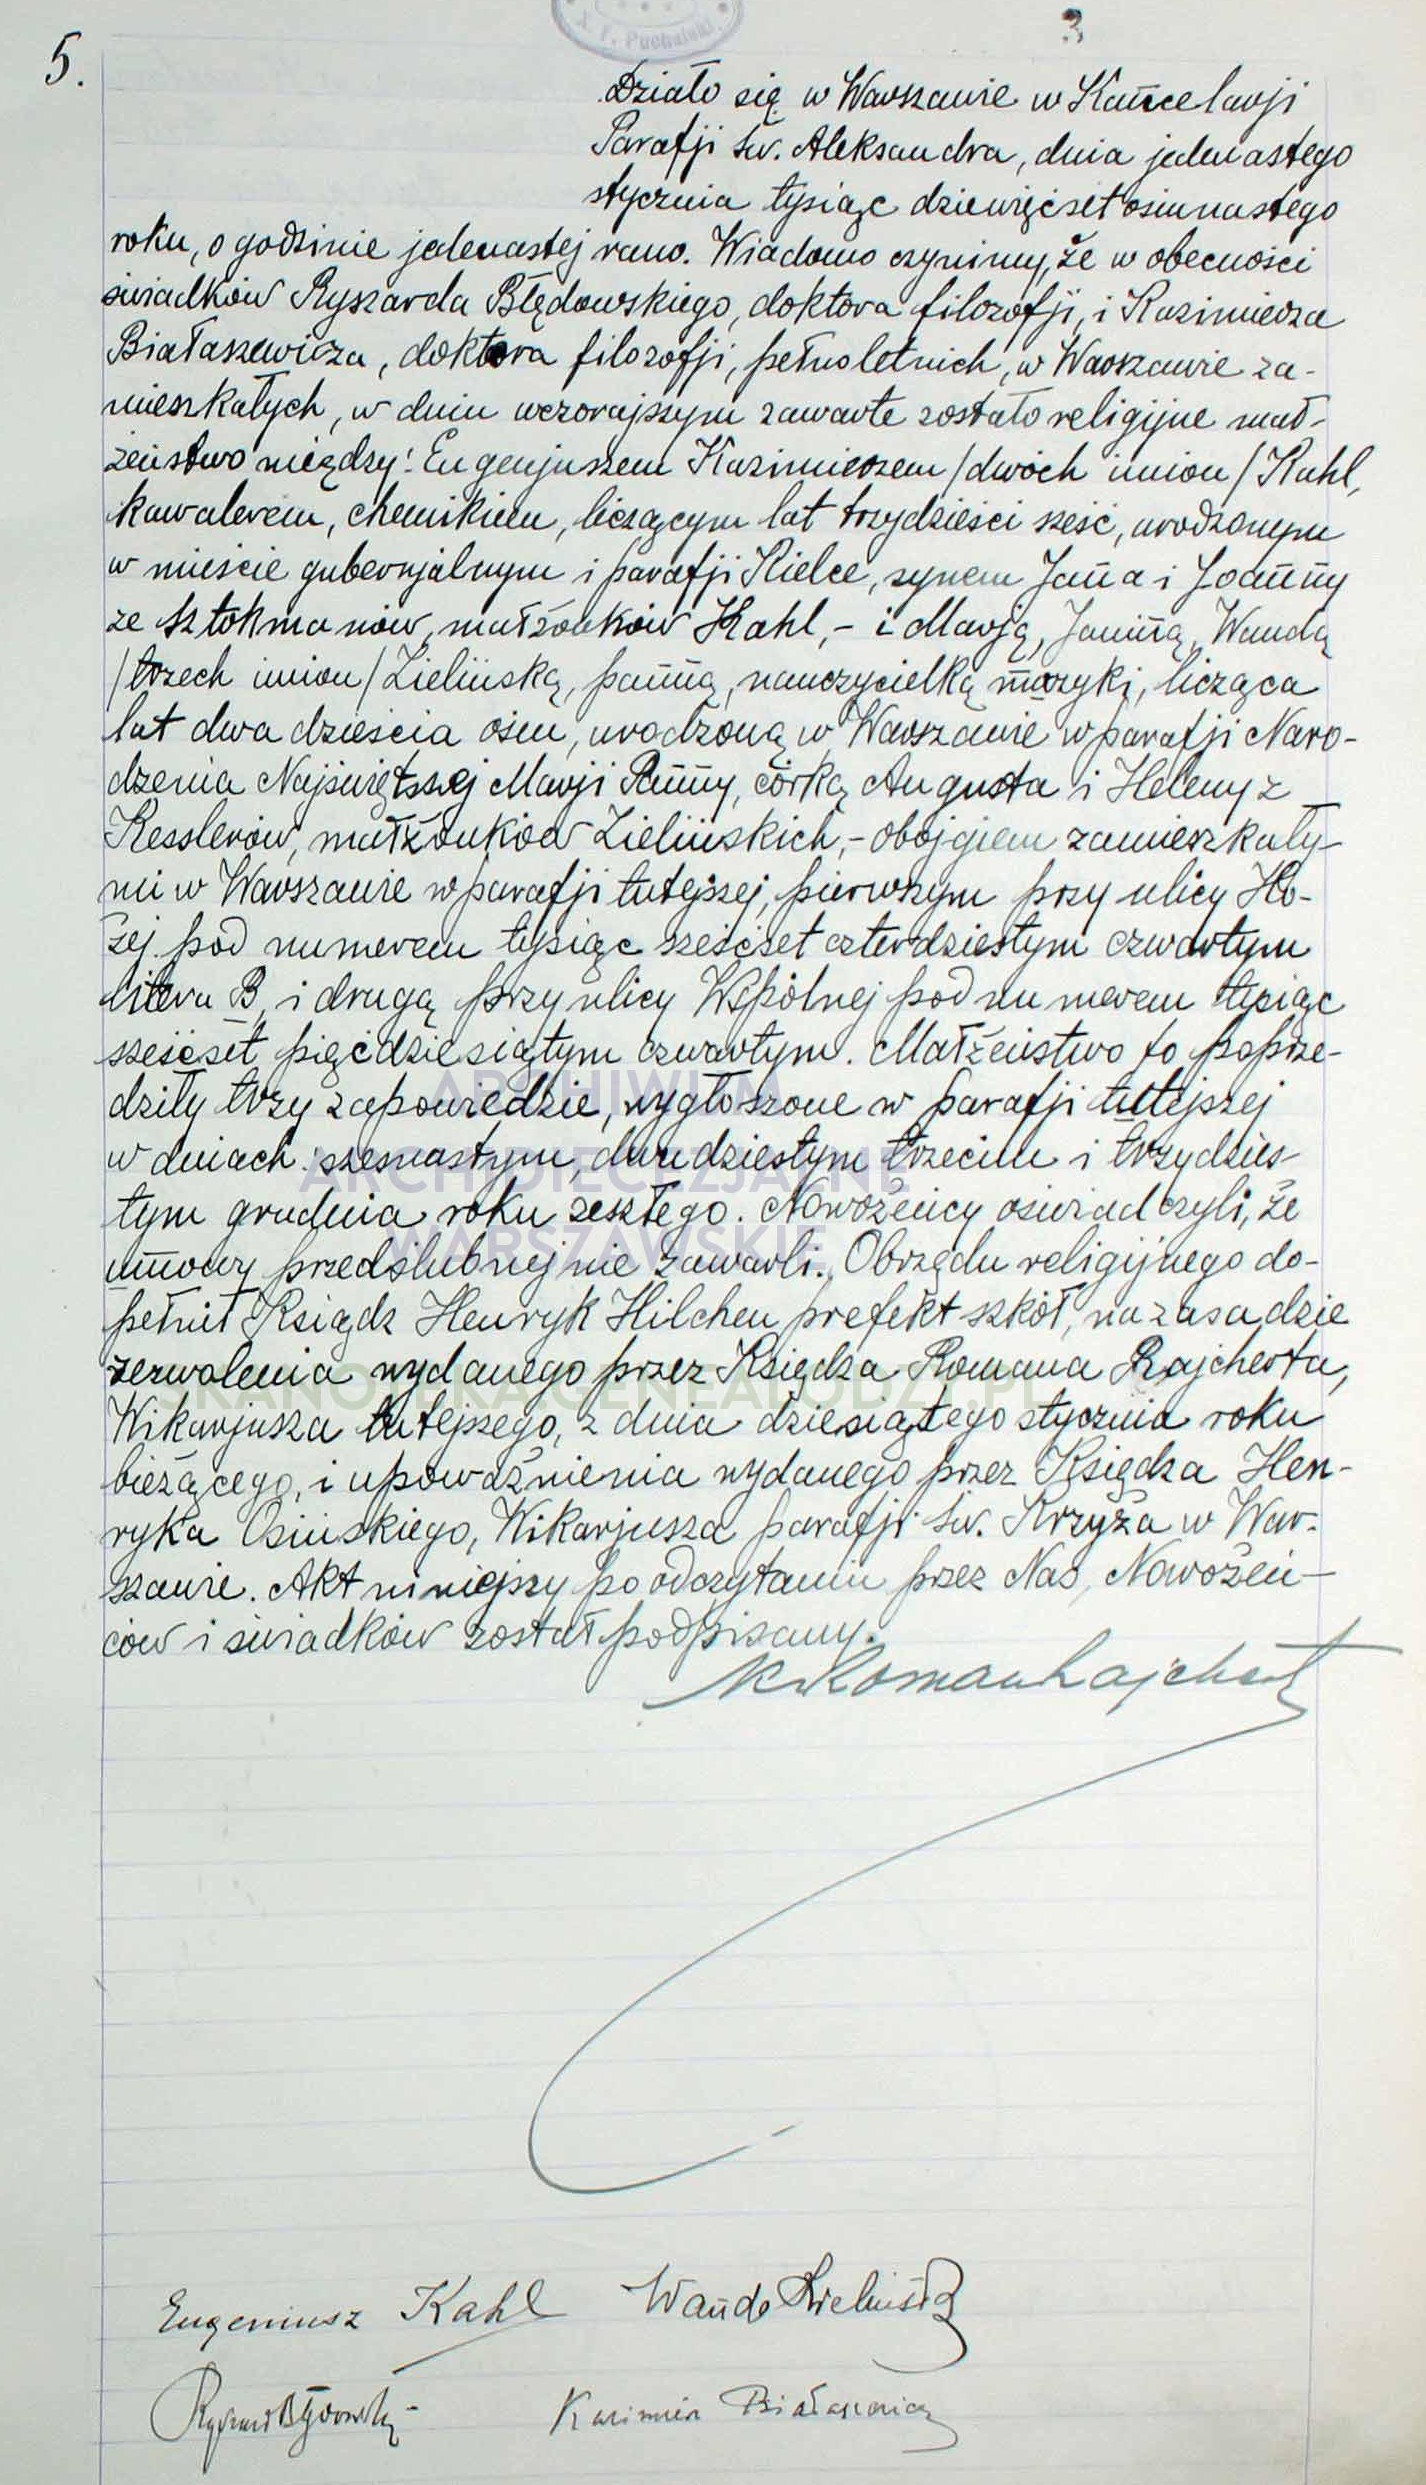 3
5.
Działo się w Warszawie w Kancelarji
Parafji św. Aleksandra, dnia jedenastego
stycznia tysiąc dziewięćset osiemnastego
roku, o godzinie jedenastej rano. Wiadomo czynimy, że w obecności
świadków Ryszarda Błędowskiego, doktora filozofji, i Kazimierza
Białaszewicza, doktora filozofji, pełnoletnich, w Warszawie za-
mieszkałych, w dniu wczorajszym zawarte zostało religijne mał-
żeństwo między: Eugenjuszem Kazimierzem /dwóch imion/ Kahl,
kawalerem, chemikiem, liczącym lat trzydzieści sześć, urodzonym
w mieście gubernjalnym i parafji Kielce, synem Jana i Joanny
ze Sztokmanów, małżonków Kahl, - i Marją, Janiną, Wandą
/trzech imion/ Zielińską, panną, nauczycielką muzyki, licząca
lat dwadzieścia osiem, urodzoną w Warszawie w parafji Naro-
dzenia Najświętszej Marji Panny, córką Augusta i Heleny z
Kesslerów, małżonków Zielińskich, - obojgiem zamieszkały-
mi w Warszawie w parafji tutejszej, pierwszym przy ulicy Ho-
żej pod numerem tysiąc sześćset czterdziestym czwartym
litera B, i drugą przy ulicy Wspólnej pod numerem tysiąc
sześćset pięćdziesiątym czwartym. Małżeństwo to poprze-
dziły trzy zapowiedzie, wygłoszone w parafji tutejszej
w dniach: szesnastym, dwudziestym trzecim i trzydzies-
tym grudnia roku zeszłego. Nowożeńcy oświadczyli, że
umowy przedślubnej nie zawarli. Obrzędu religijnego do-
pełnił Ksiądz Henryk Hilchen prefekt szkół, na zasadzie
zezwolenia wydanego przez Księdza Romana Rajcherta,
Wikarjusza tutejszego, z dnia dziesiątego stycznia roku
bieżącego, i upoważnienia wydanego przez Księdza Hen-
ryka Osińskiego, Wikarjusza parafji św. Krzyża w War-
szawie. Akt niniejszy po odczytaniu przez Nas, Nowożeń-
ców i świadków został podpisany.
X Roman Rajchert
Eugeniusz Kahl Wanda Zielińska
Ryszard Błędowski Kazimierz Białaszewicz
ARCHIWUM
ARCHIDIECEZJALNE
WARSZAWSKIE